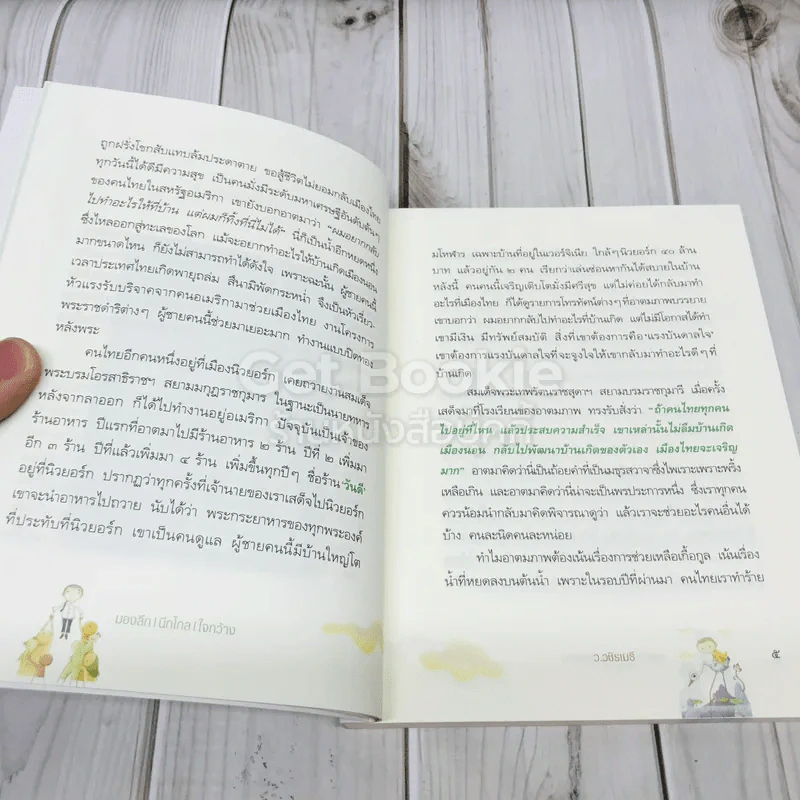 ถูกฝรั่งโขกสับแทบล้มประดาตาย ขอสู้ชีวิตไม่ยอมกลับเมืองไทย
ทุกวันนี้ได้ดีมีความสุข เป็นคนมั่งมีระดับมหาเศรษฐีอันดับต้นๆ
ของคนไทยในสหรัฐอเมริกา เขายังบอกอาตมาว่า "ผมอยากกลับ
ไปทำอะไรให้ที่บ้าน แต่ผมก็ทิ้งที่นี่ไม่ได้" นี่ก็เป็นน้ำอีกหยดหนึ่ง
ซึ่งไหลออกสู่ทะเลของโลก แม้จะอยากทำอะไรให้บ้านเกิดเมืองนอน
มากขนาดไหน ก็ยังไม่สามารถทำได้ดังใจ เพราะฉะนั้น ผู้ชายคนนี้
เวลาประเทศไทยเกิดพายุถล่ม สึนามิพัดกระหน่ำ จึงเป็นหัวเรี่ยว-
หัวแรงรับบริจาคจากคนอเมริกามาช่วยเมืองไทย งานโครงการ
พระราชดำริต่างๆ ผู้ชายคนนี้ช่วยมาเยอะมาก ทำงานแบบปิดทอง
หลังพระ
คนไทยอีกคนหนึ่งอยู่ที่เมืองนิวยอร์ก เคยถวายงานสมเด็จ
พระบรมโอรสาธิราชฯ สยามมกุฎราชกุมาร ในฐานะเป็นนายทหาร
หลังจากลาออก ก็ได้ไปทำงานอยู่อเมริกา ปัจจุบันเป็นเจ้าของ
ร้านอาหาร ปีแรกที่อาตมาไปมีร้านอาหาร ๒ ร้าน ปีที่ ๒ เพิ่มมา
อีก ๓ ร้าน ปีที่แล้วเพิ่มมา ๔ ร้าน เพิ่มขึ้นทุกปีๆ ชื่อร้าน'วันดี'
อยู่ที่นิวยอร์ก ปรากฏว่าทุกครั้งที่เจ้านายของเราเสด็จไปนิวยอร์ก
เขาจะนำอาหารไปถวาย นับได้ว่า พระกระยาหารของทุกพระองค์
ที่ประทับที่นิวยอร์ก เขาเป็นคนดูแล ผู้ชายคนนี้มีบ้านใหญ่โต
มองลึก | นึกไกล | ใจกว้าง
มโหฬาร เฉพาะบ้านที่อยู่ในเวอร์จิเนีย ใกล้ๆนิวยอร์ก ๔๐ ล้าน
บาท แล้วอยู่กัน ๒ คน เรียกว่าเล่นซ่อนหากันได้สบายในบ้าน
หลังนี้ คนคนนี้เจริญเติบโตมั่งมีศรีสุข แต่ไม่ค่อยได้กลับมาทำ
อะไรที่เมืองไทย ก็ได้ดูรายการโทรทัศน์ต่างๆ ที่อาตมภาพบรรยาย
เขาบอกว่า ผมอยากกลับไปทำอะไรที่บ้านเกิด แต่ไม่มีโอกาสได้ทำ
เขามีเงิน มีทรัพย์สมบัติ สิ่งที่เขาต้องการคือ'แรงบันดาลใจ'
เขาต้องการแรงบันดาลใจที่จะจูงใจให้เขากลับมาทำอะไรดีๆ ที่
บ้านเกิด
สมเด็จพระเทพรัตนราชสุดาฯ สยามบรมราชกุมารี เมื่อครั้ง
เสด็จมาที่โรงเรียนของอาตมภาพ ทรงรับสั่งว่า "ถ้าคนไทยทุกคน
ไปอยู่ที่ไหน แล้วประสบความสำเร็จ เขาเหล่านั้นไม่ลืมบ้านเกิด
เมืองนอน กลับไปพัฒนาบ้านเกิดของตัวเอง เมืองไทยจะเจริญ
มาก" อาตมาคิดว่านี่เป็นถ้อยคำที่เป็นมธุรสวาจาซึ่งไพเราะเพราะพริ้ง
เหลือเกิน และอาตมาคิดว่านี่น่าจะเป็นพรประการหนึ่ง ซึ่งเราทุกคน
ควรน้อมนำกลับมาคิดพิจารณาดูว่า แล้วเราจะช่วยอะไรคนอื่นได้
บ้าง คนละนิดคนละหน่อย
ทำไมอาตมภาพต้องเน้นเรื่องการช่วยเหลือเกื้อกูล เน้นเรื่อง
น้ำที่หยดลงบนต้นน้ำ เพราะในรอบปีที่ผ่านมา คนไทยเราทำร้าย
ว.วชิรเมธี
๕
Get Bookie
ร้านหนังสือออนไลน์